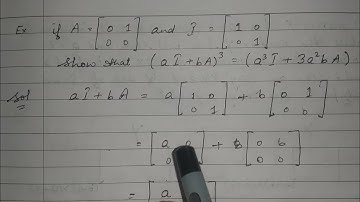 Ex if A = [ 0 1 ] and I = [ 1 0 ]
[ 0 0 ] [ 0 1 ]
Show that (aI + bA)³ = (a³I + 3a²bA)
Sol aI + bA = a [ 1 0 ] + b [ 0 1 ]
[ 0 1 ] [ 0 0 ]
= [ a 0 ] + [ 0 b ]
[ 0 ] [ 0 0 ]
= [ a